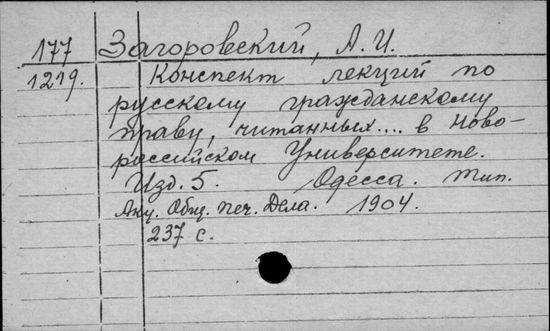 177 Загоровский, А. И.
1219. Конспект лекций по
русскому гражданскому
праву, читанных.... в Ново-
российском Университете.
Изд. 5. Одесса. Тип.
Акц. Общ. Печ. Дела. 1904.
237 с.